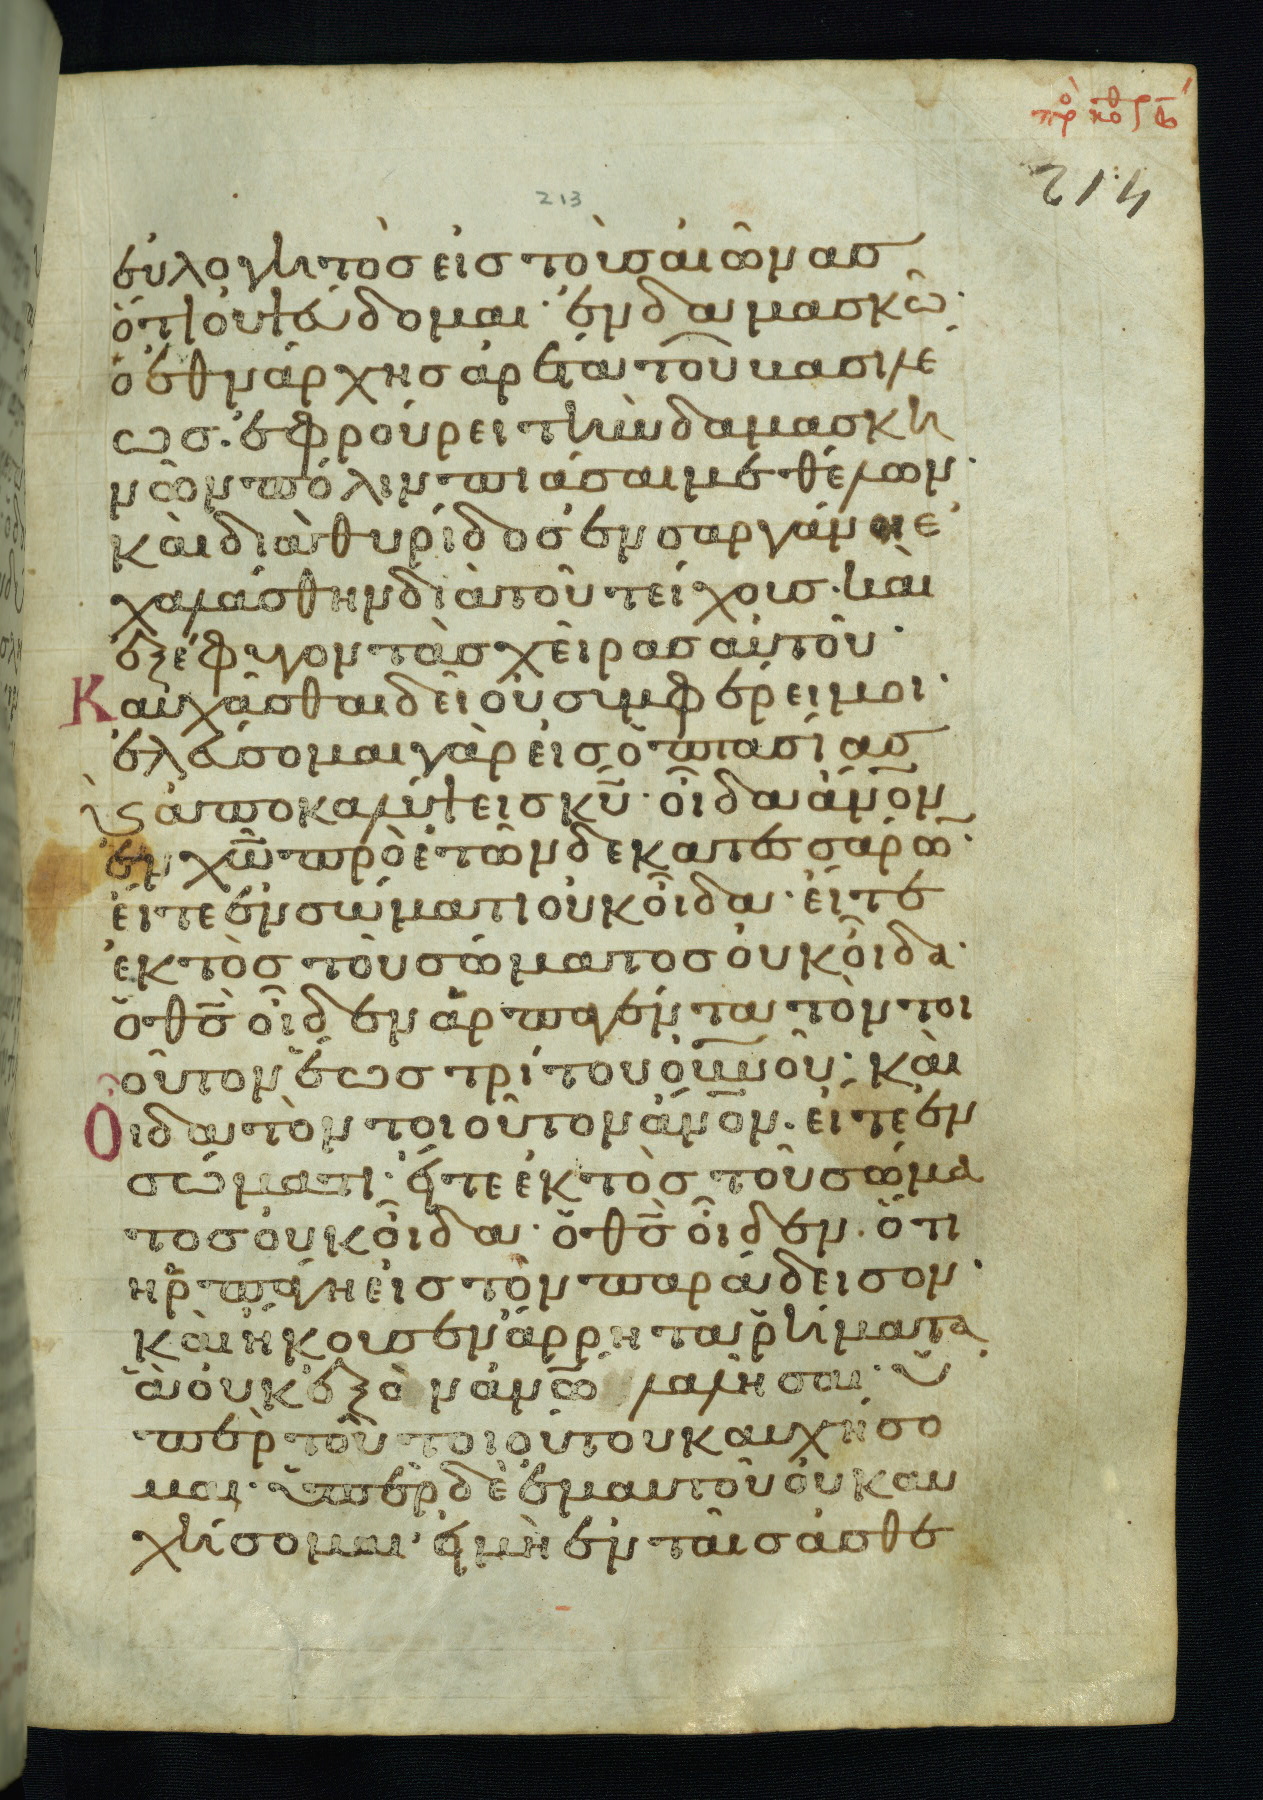 214
213
εὐλογητὸσ εἰσ τοὺσ αἰῶνασ
ὅτι οὐ ψεύδομαι· ἐν δαμασκῶ·
ὁ ἐθνάρχησ ἀρέτα τοῦ βασιλέ
ωσ· ἐφρούρει τὴν δαμασκη
νῶν πόλιν πιάσαι με θέλων·
καὶ διὰ θυρίδοσ ἐν σαργάνη ἐ
χαλάσθην διὰ τοῦ τείχουσ· καὶ
ἐξέφυγον τὰσ χεῖρασ αὐτοῦ·
Καυχᾶσθαι δεῖ οὐ συμφέρει μοι·
ἐλεύσομαι γὰρ εἰσ ὀπτασίασ
ϗ ἀποκαλύψεισ κ̅υ̅· οἶδα ἄν̅ο̅ν
ἐν χ̅ω̅ πρὸ ἐτῶν δεκατεσσάρω̅·
εἴτε ἐν σώματι οὐκ οἶδα· εἴτε
ἐκτὸσ τοῦ σώματοσ οὐκ οἶδα·
ὁ θ̅σ̅ οἶδεν ἁρπαγέντα τὸν τοι
οῦτον ἕωσ τρίτου οὐ̅ν̅οῦ· καὶ
Οἶδα τὸν τοιοῦτον ἄν̅ο̅ν· εἴτε ἐν
σώματι· εἴτε ἐκτὸσ τοῦ σώμα
τοσ οὐκ οἶδα· ὁ θ̅σ̅ οἶδεν· ὅτι
ἡρπάγη εἰσ τὸν παράδεισον·
καὶ ἤκουσεν ἄρρητα ῥήματα
ἃ οὐκ ἐξὸν ἀν̅ω̅ λαλῆσαι· ὑ
πὲρ τοῦ τοιούτου καυχήσο
μαι· ὑπὲρ δὲ ἐμαυτοῦ οὐ καυ
χήσομαι· εἰ μὴ ἐν ταῖσ ἀσθε